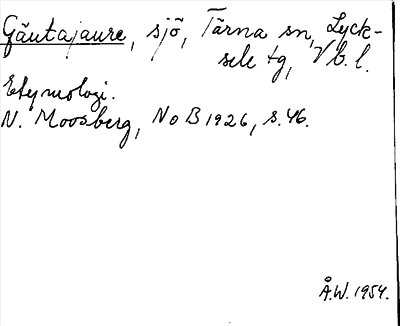 Gäutajaure, sjö, Tärna sn, Lyck-
sele tg, Vb. l.
Etymologi.
N. Moosberg, NoB 1926, s. 46.
Å.W. 1954.